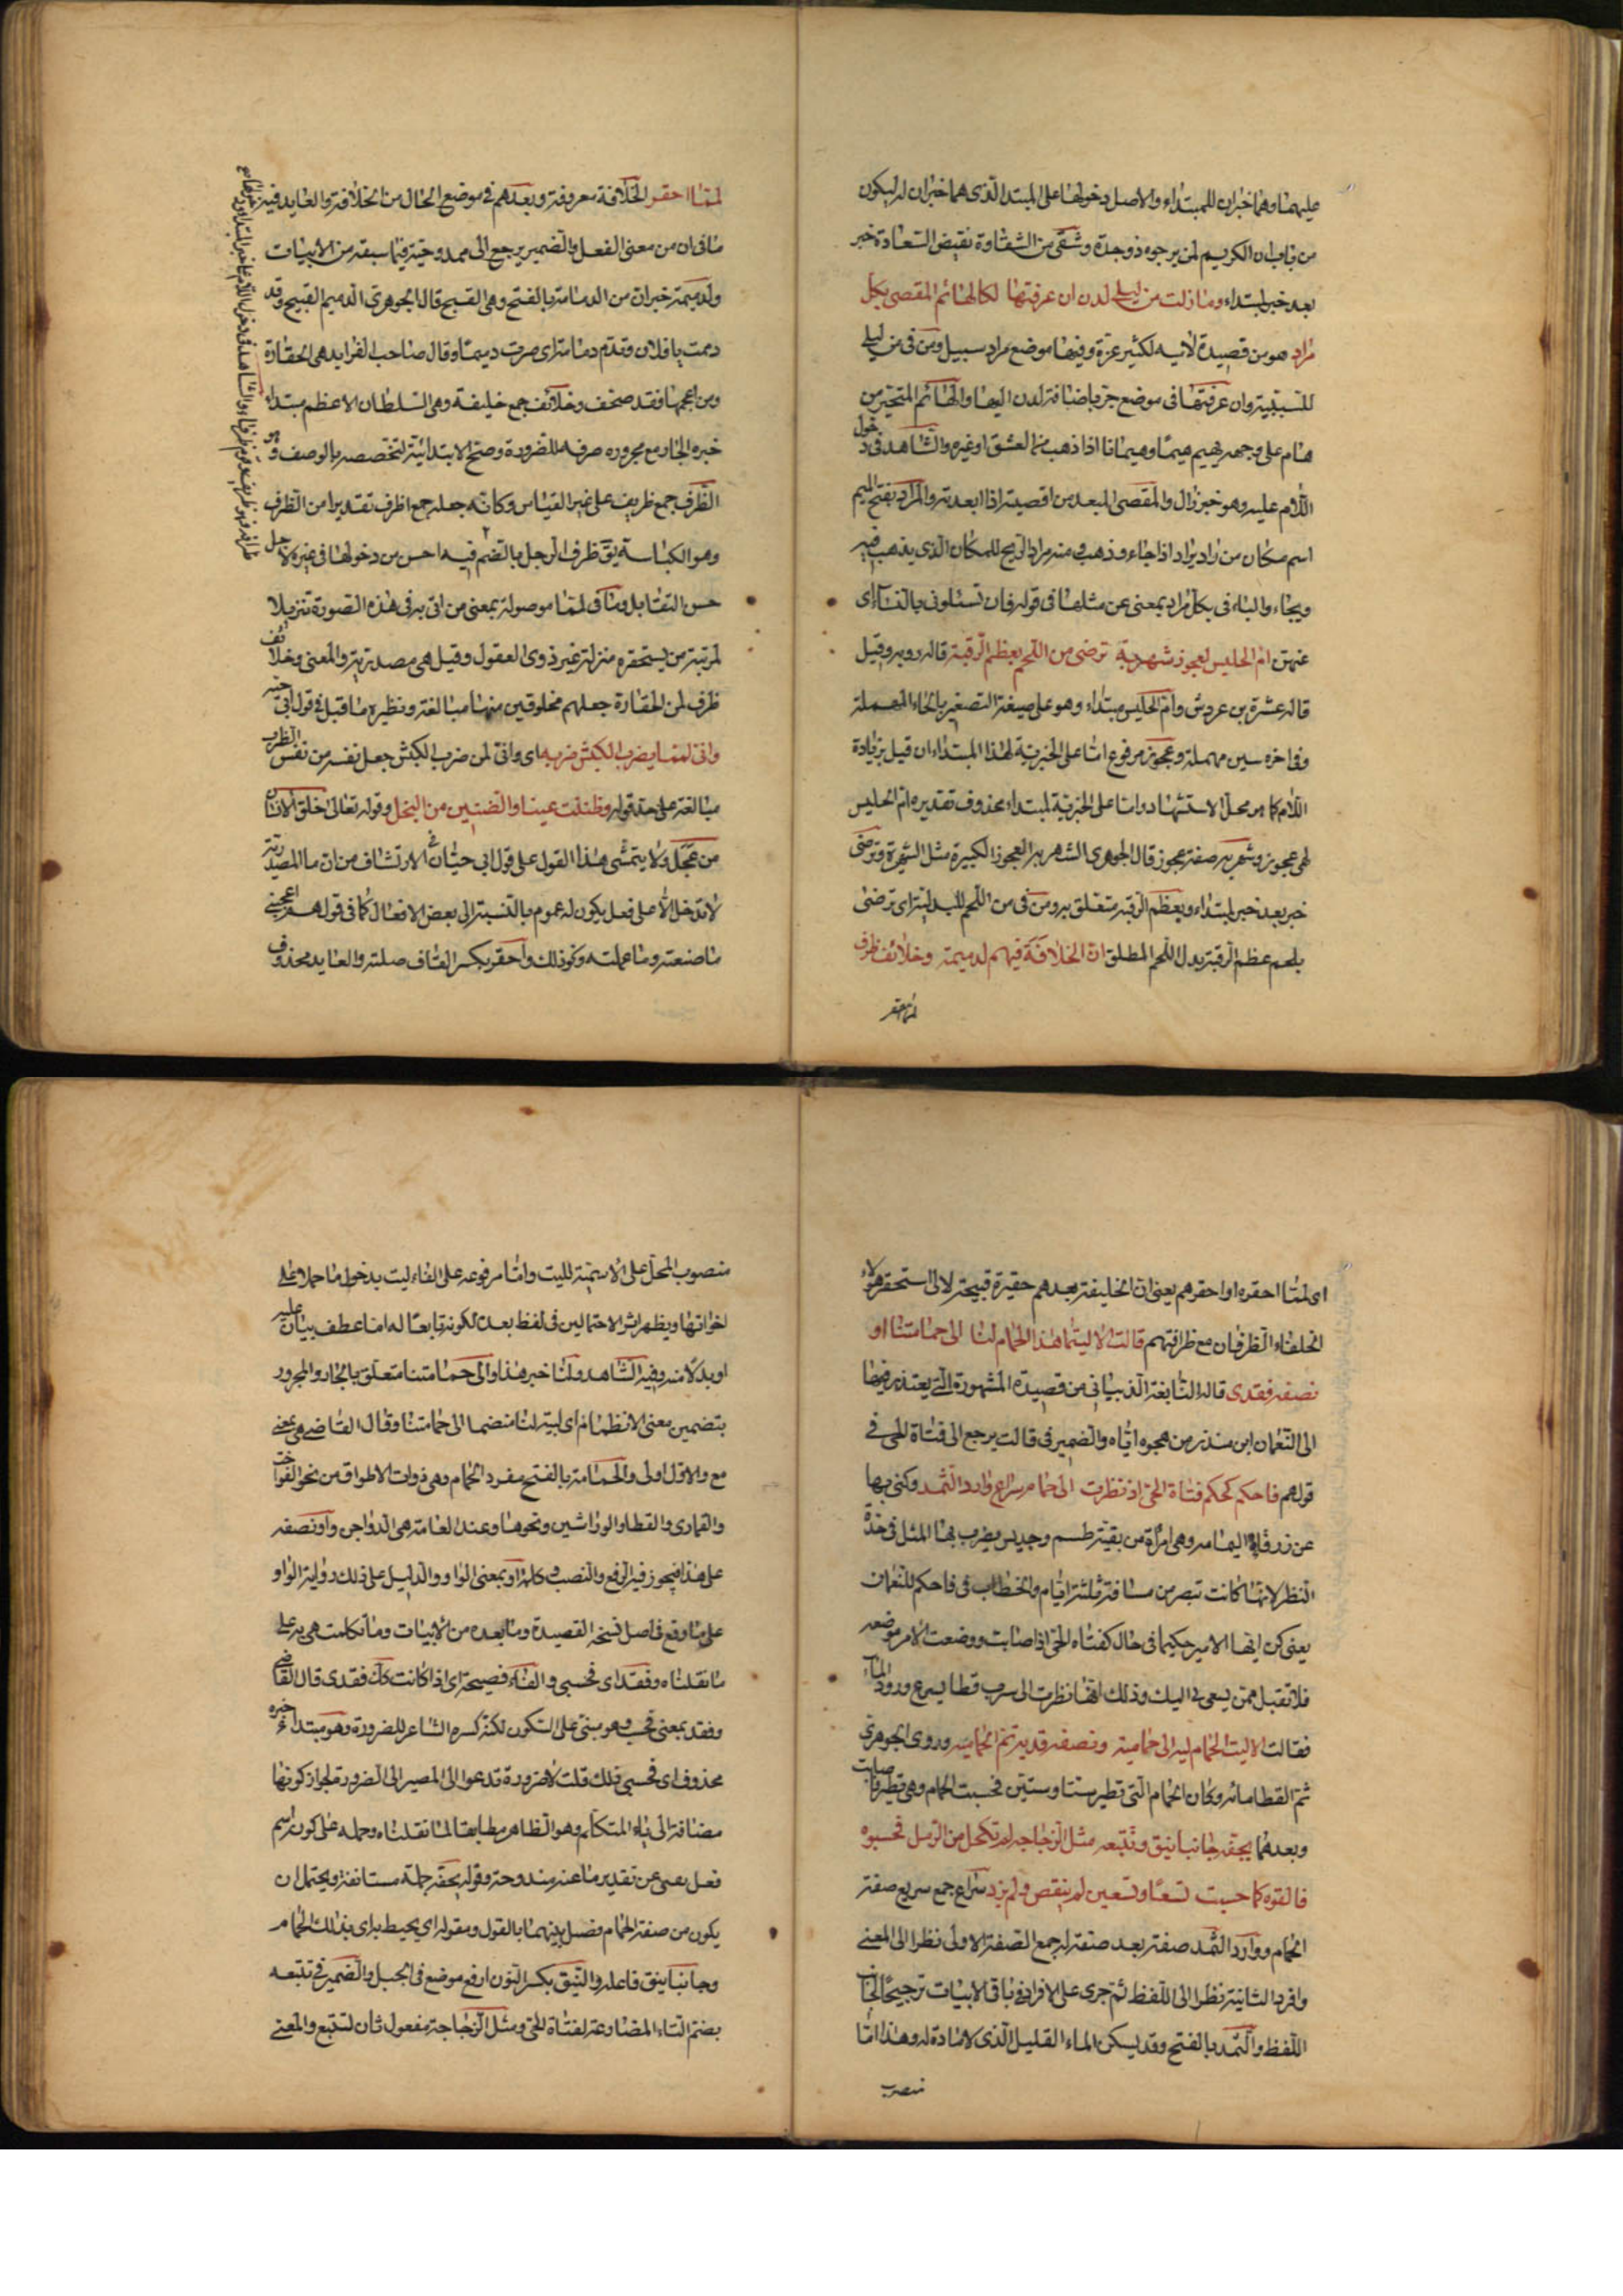 عليهما وهما خبران للمبتداء والاصل دخولها على المبتدا الذى هما خبران له ليكون
من باب ان الكريم لمن يرجوه ذو جدة وشقى من الشقاوة نقيض السعادة خبر
بعد خبر لمبتداء وما زلت من ليلى لدن ان عرفتها لكالهائم المقصى بكل
مراد هو من قصيدة لاتيه لكثير عزة وفيها موضع مراد سبيل ومن فى من ليلى
للسببية وان عرفتها فى موضع جر باضافة لدن اليها والهائم المتحير من
هام على وجهه يهيم هيما وهيمانا اذا ذهب من العشق او غيره والشاهد فى دخول
اللام عليه وهو خبر زال والمقصى المبعد من اقصيته اذا ابعدته والمراد بفتح الميم
اسم مكان من راد يراد اذا جاء وذهب ومنه مراد الريح للمكان الذى يذهب فيه
ويجاء والباء فى بكل مراد بمعنى عن مثلها فى قوله فان تسئلونى بالنساء اى
عنهن ام الحليس لعجوز شهربة ترضى من اللحم بعظم الرقبة قاله روبه وقيل
قاله عنترة بن عروش وام الحليس مبتداء وهو على صيغة التصغير بالحاء المهملة
وفى اخره سين مهملة وعجوز مرفوع اما على الخبرية لهذا المبتداء ان قيل بزيادة
اللام كما هو محل الاستشهاد واما على الخبرية لمبتداء محذوف تقديره ام الحليس
لهى عجوز وشهربه صفة عجوز قال الجوهرى الشهربه العجوز الكبيرة مثل الشهبرة وترضى
خبر بعد خبر لمبتداء وبعظم الرقبه متعلق به ومن فى من اللحم للبدلية اى ترضى
بلحم عظم الرقبة بدل اللحم المطلق ان الخلافة فيهم لدميمة وخلائف ظرف
لمما احقر
لمما احقر الخلافة معروفة وبعدهم فى موضع الحال من الخلافة والعايد فيه
ما فى ان من معنى الفعل والضمير يرجع الى ممدوحيه فيما سبقه من الابيات
ولدميمة خبر ان من الدمامة بالفتح وهى القبح قال الجوهرى الدميم القبيح وقد
دممت يا فلان وتدم دمامة اى صرت دميما وقال صاحب الفرايد هى الحقارة
ومن اعجمها فقد صحف وخلائف جمع خليفة وهى السلطان الاعظم مبتداء
خبره الجار مع مجروره صرفه للضرورة وصح الابتدائية لتخصصه بالوصف وهو
الظرف جمع ظريف على غير القياس وكانه جعله جمع اظرف تقديرا من الظرف
وهو الكياسة يق ظرف الرجل بالضم فيه احسن من دخولها فى غيره لاجل
حسن التقابل وما فى لمما موصولة بمعنى من اتى به فى هذه الصورة تنزيلا
لمرتبة من يستحقره منزلة غير ذوى العقول وقيل هى مصدرية والمعنى وخلائف
ظرف لمن الحقارة جعلهم مخلوقين منها مبالغة ونظيره ما قيل فى قول ابى حية
وانى لمما يضرب الكبش ضربه اى وانى لمن ضرب الكبش جعل نفسه من نفس الضرب
مبالغة على حد قوله وظنت عينا والضنين من البخل وقوله تعالى خلق الانسان
من عجل ولا يتمشى هذا القول على قول ابى حيان فى الارتشاف من ان ما المصدرية
لا تدخل الا على فعل يكون له عموم بالنسبة الى بعض الافعال كما فى قولهم اعجبنى
ما صنعته وما عملته ونحو ذلك واحقر بكسر القاف صلته والعايد محذوف
اى لمما احقره او احقرهم يعنى ان الخليفة بعدهم حقيرة قبيحة لانى استحقر هؤلاء
الخلفاء الظرفان مع ظرافتهم قالت الا ليتما هذا الحمام لنا الى حمامتنا او
نصفه فقدى قاله النابغة الذبيانى من قصيدة المشهورة التى يعتذر فيها
الى النعمان ابن منذر من هجوه اياه والضمير فى قالت يرجع الى فتاة الحى فى
قولهم فاحكم كحكم فتاة الحى اذ نظرت الى حمام سراع وارد الثمد وكنى بها
عن زرقاء اليمامه وهى امرأة من بقية طسم وجديس يضرب بها المثل فى حدة
النظر لانها كانت تبصر من مسافة ثلثة ايام والخطاب فى فاحكم للنعمان
يعنى كن ايها الامير حكيما فى حال كفتاه الحى اذا صابت ووضعت الامر موضعه
فلا تقبل ممن يسعى بى اليك وذلك انها نظرت الى سرب قطا يسرع ورود الماء
فقالت الا ليت الحمام ليه الى حمامتيه ونصفه قديه تم الحمام ميه وروى الجوهرى
ثم القطا مائه وكان الحمام التى تطير ستا وستين فحسبت الحمام وهى تطير فاصابت
وبعدهما يحفه جانبا نيق وتتبعه مثل الزجاجه لم تكحل من الرمل فحسبوه
فالفوه كما حسبت تسعا وتسعين لم ينقص ولم يزد سراع جمع سريع صفة
الحمام ووارد الثمد صفة بعد صفة له جمع الصفة الاولى نظرا الى المعنى
وافرد الثانية نظرا الى اللفظ ثم جرى على الافراد فى باقى الابيات ترجيحا لجانب
اللفظ والثمد بالفتح وقد يسكن الماء القليل الذى لا مادة له وهذا اما
منصوب
منصوب المحل على الاسمية لليت واما مرفوعه على الغاء ليت بدخول ما حملا على
اخواتها ويظهر اثر الاحتمالين فى لفظ بعد لكونه تابعا له اما عطف بيان عليه
او بدلا منه وفيه الشاهد ولنا خبر هذا والى حمامتنا متعلق بالجار والمجرور
بتضمين معنى الانضمام اى ليته لنا منضما الى حمامتنا وقال القاضى هى بمعنى
مع والاول اولى والحمامة بالفتح مفرد الحمام وهى ذوات الاطواق من نحو الفواخت
والقمارى والقطا والوراشين ونحوها وعند العامة هى الدواجن واو نصفه
على هذا فيجوز فيه الرفع والنصب وكلمة او بمعنى الواو والدليل على ذلك رواية الواو
على ما وقع فى اصل نسخة القصيدة وما بعده من الابيات وما تكلمت هى به على
ما نقلناه وفقد اى فحسبى والفاء فصيحة اى اذا كانت كك فقدى قال القاضى
وفقد بمعنى فحسب وهو مبنى على السكون لكنه كسره الشاعر للضرورة وهو مبتداء خبره
محذوف اى فحسبى ذلك قلت لا ضرورة تدعوا الى المصير الى الضرورة لجواز كونها
مضافة الى ياء المتكلم وهو الظاهر مطابقا لما نقلناه وحمله على كون اسم
فعل بمعنى عن تقدير ما عنه مندوحة وقوله يحفه جملة مستانفة ويحتمل ان
يكون من صفة الحمام فصل بينهما بالقول ومقوله اى يحيط به اى بذلك الحمام
وجانبا نيق فاعله والنيق بكسر النون ارفع موضع فى الجبل والضمير فى تتبعه
بضم التاء المضارعة لفتاة الحى ومثل الزجاجة مفعول ثان لتتبع والمعنى